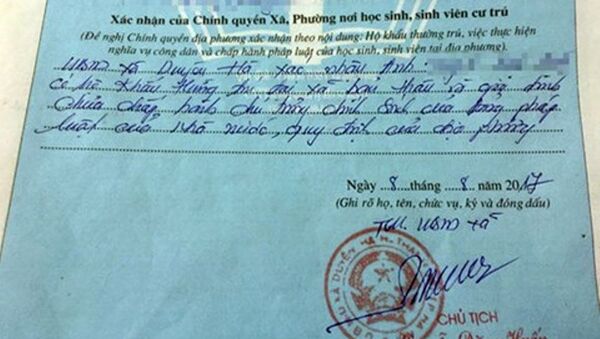 Xác nhận của Chính quyền Xã, Phường nơi học sinh, sinh viên cư trú
(Đề nghị Chính quyền địa phương xác nhận theo nội dung: Hộ khẩu thường trú, việc thực hiện
nghĩa vụ công dân và chấp hành pháp luật của học sinh, sinh viên tại địa phương).
UBND xã Duyên Hà xác nhận Anh:
có hộ khẩu thường trú tại xã bản thân và gia đình
chưa chấp hành chủ trương chính sách của Đảng pháp
luật của nhà nước, quy định của địa phương
Ngày 8 tháng 8 năm 2017
(Ghi rõ họ, tên, chức vụ, ký và đóng dấu)
TM. UBND xã
CHỦ TỊCH